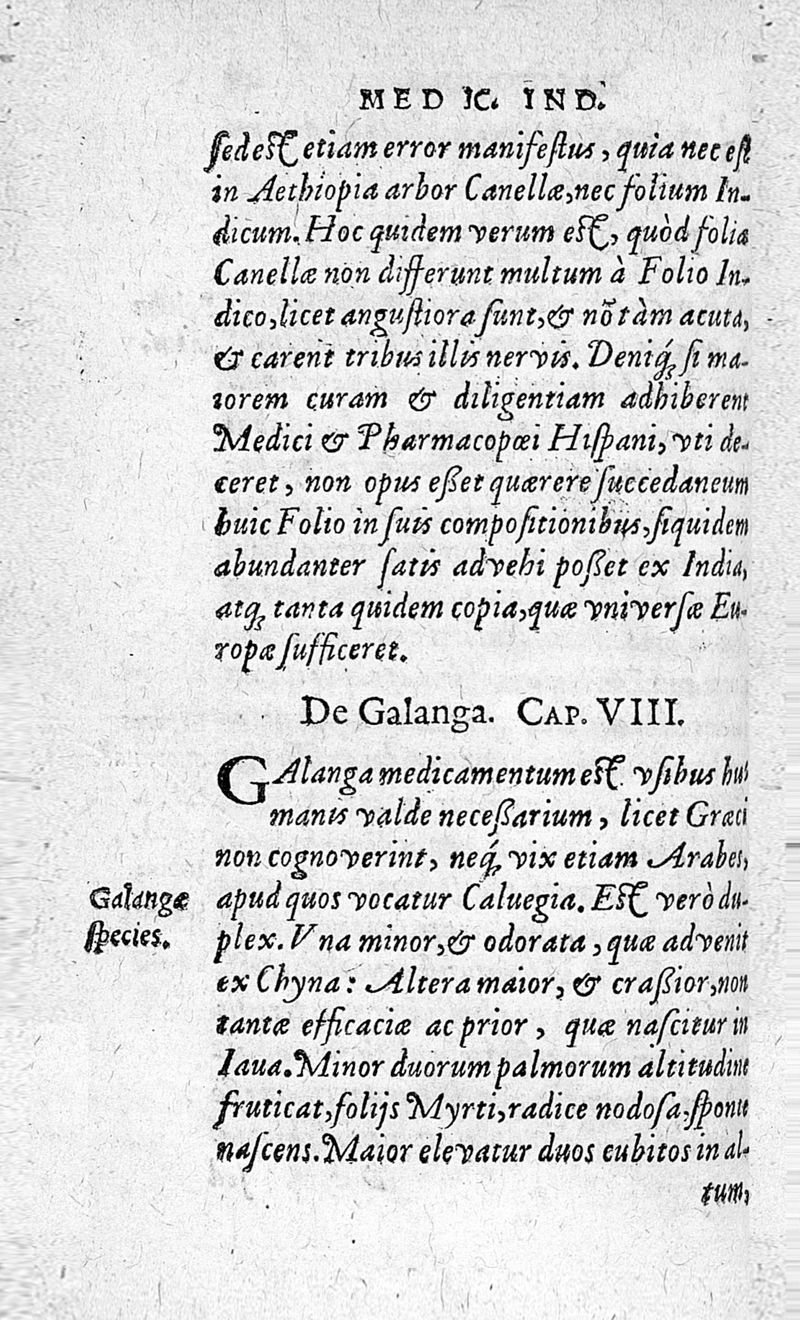 MEDIC. IND.
sed est etiam error manifestus, quia nec est
in Aethiopia arbor Canellæ, nec folium In-
dicum. Hoc quidem verum est, quòd folia
Canellæ non differunt multum à Folio In-
dico, licet angustiora sunt, & nõ tàm acuta,
& carent tribus illis nervis. Deniq́; si ma-
iorem curam & diligentiam adhiberent
Medici & Pharmacopœi Hispani, vti de-
ceret, non opus eßet quærere succedaneum
huic Folio in suis compositionibus, siquidem
abundanter satis advehi poßet ex India,
atq; tanta quidem copia, quæ vniversæ Eu-
ropæ sufficeret.
De Galanga. CAP. VIII.
GAlanga medicamentum est vsibus hu-
manis valde neceßarium, licet Græci
non cognoverint, neq́; vix etiam Arabes,
Galangæ
species.
apud quos vocatur Caluegia. Est verò du-
plex. Vna minor, & odorata, quæ advenit
ex Chyna: Altera maior, & craßior, non
tantæ efficaciæ ac prior, quæ nascitur in
Iaua. Minor duorum palmorum altitudine
fruticat, folijs Myrti, radice nodosa, sponte
nascens. Maior elevatur duos cubitos in al-
tum,